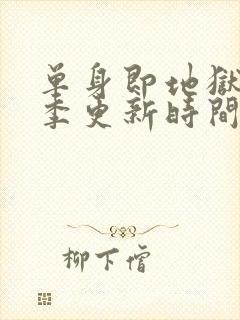 單身即地獄
季更新時間
柳下傖